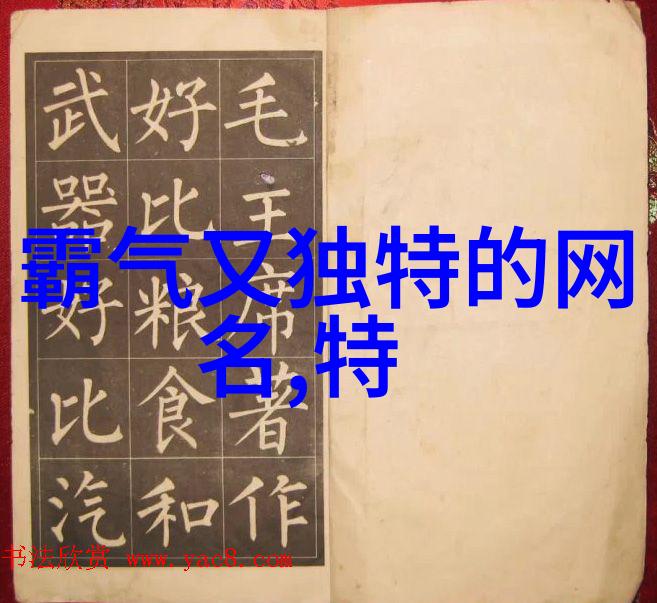 霸气又独特的网
名,特
毛主席著作
好比粮食和
武器好比汽
书法欣赏 www.yac8.com